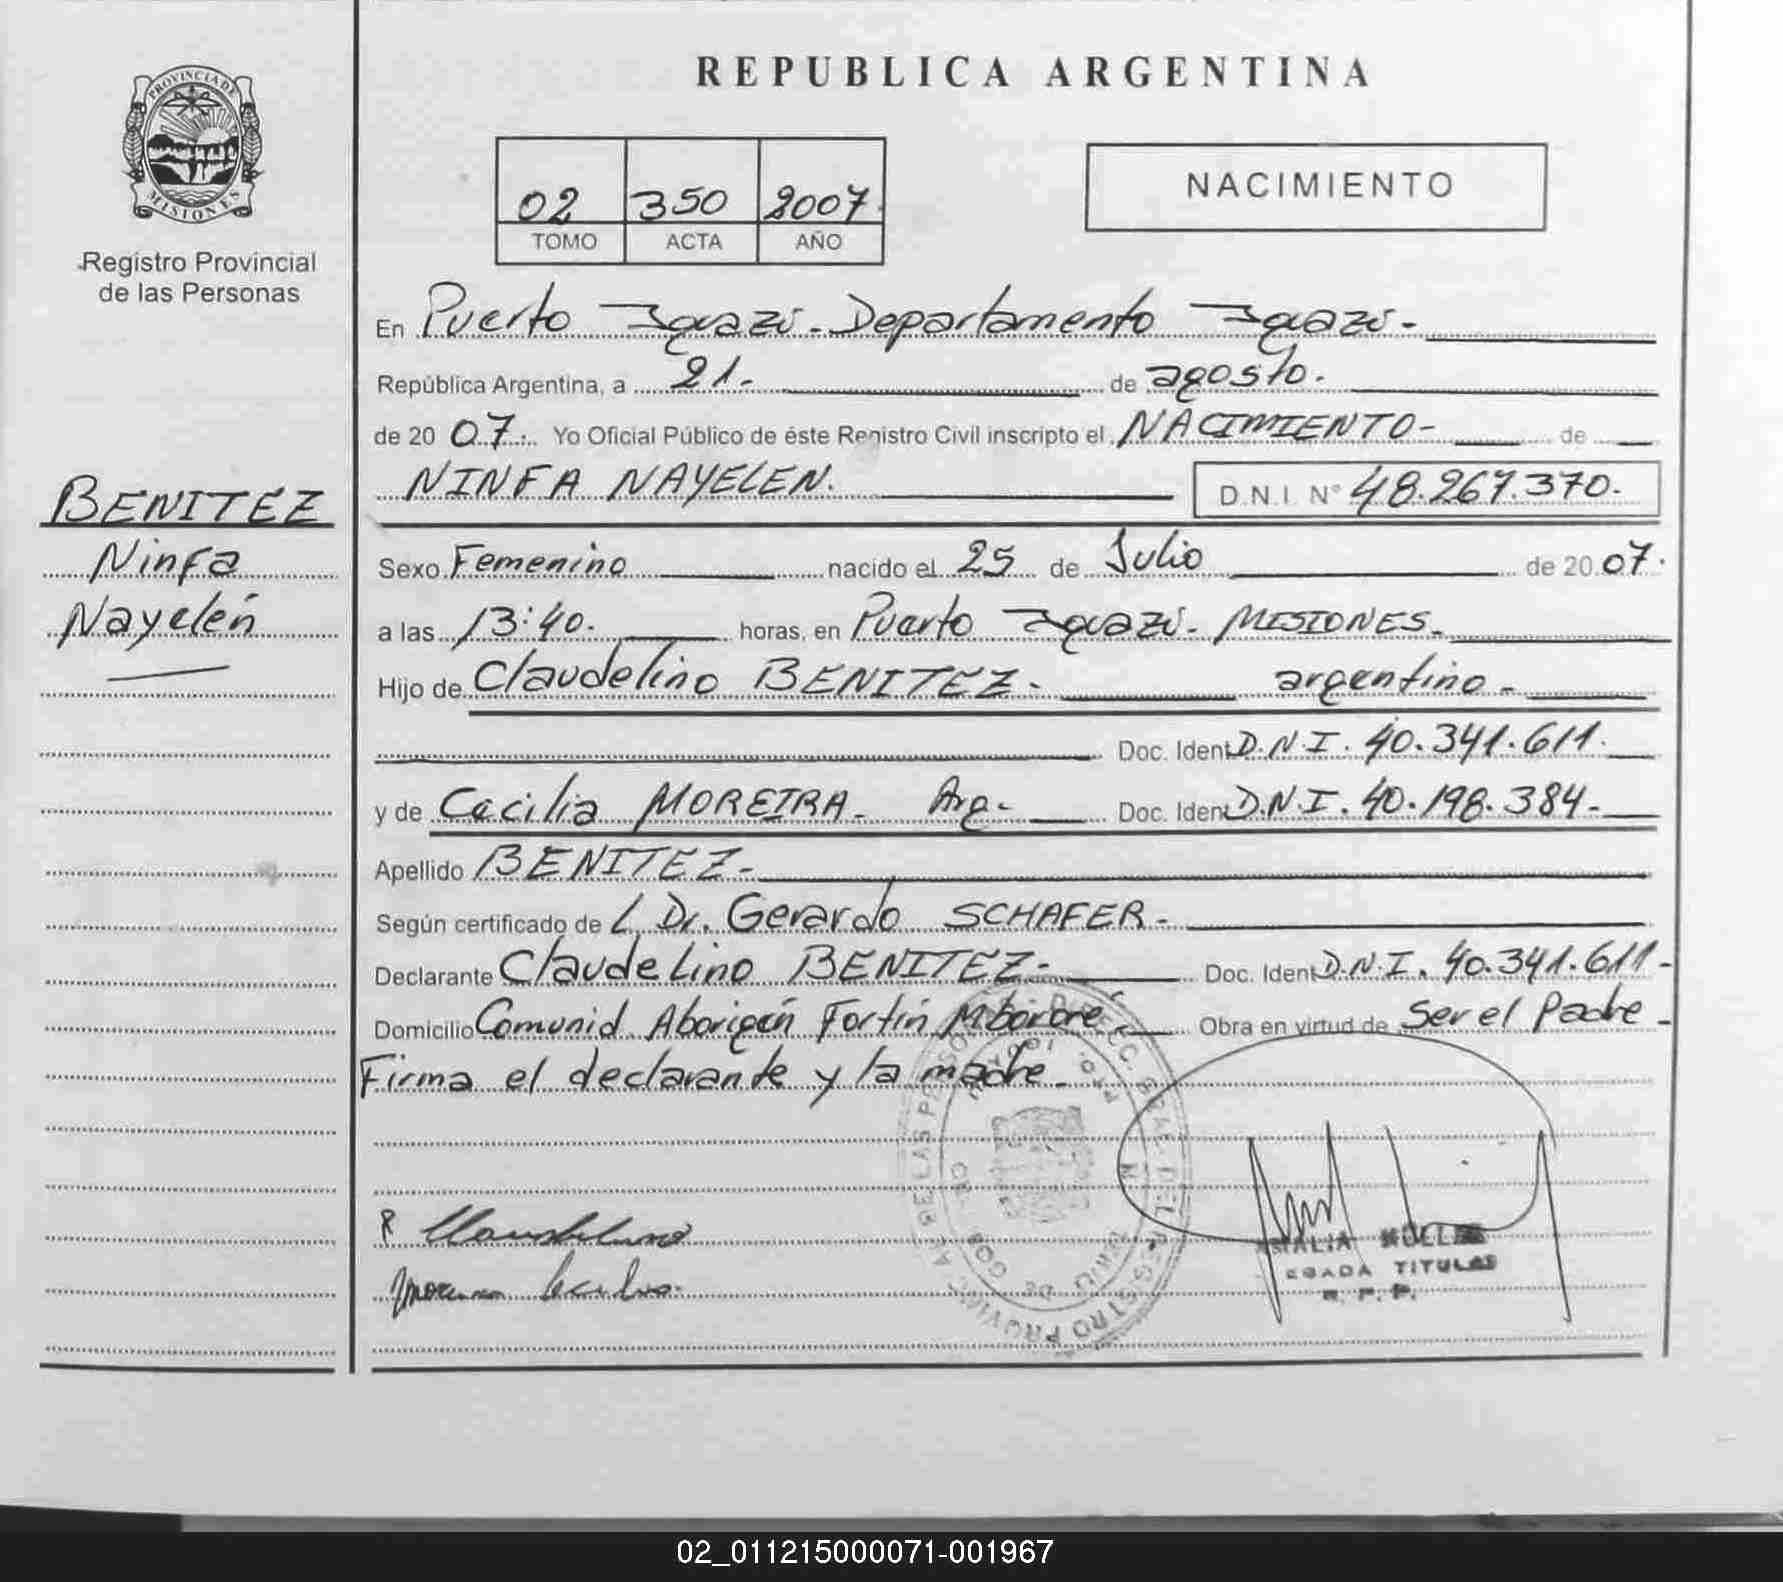 REPUBLICA ARGENTINA
PROVINCIA DE
MISIONES
Registro Provincial
de las Personas
02 350 2007
TOMO ACTA AÑO
NACIMIENTO
En Puerto Iguazú - Departamento Iguazú -
República Argentina, a 21 - de agosto.
de 20 07. Yo Oficial Público de éste Registro Civil inscripto el NACIMIENTO - de
NINFA NAYELEN. D.N.I. Nº 48.267.370.
BENITEZ
Ninfa
Nayelén
Sexo Femenino nacido el 25 de Julio de 20 07.
a las 13:40. horas, en Puerto Iguazú - MISIONES -
Hijo de Claudelino BENITEZ - argentino -
Doc. Ident D.N.I. 40.341.611.
y de Cecilia MOREIRA - Arg - Doc. Ident D.N.I. 40.198.384 -
Apellido BENITEZ -
Según certificado de L Dr. Gerardo SCHAFER -
Declarante Claudelino BENITEZ - Doc. Ident D.N.I. 40.341.611 -
Domicilio Comunid Aborigen Fortín Mbororé Obra en virtud de Ser el Padre -
Firma el declarante y la madre -
AMALIA
TITULAR
R. P. P.
02_011215000071-001967